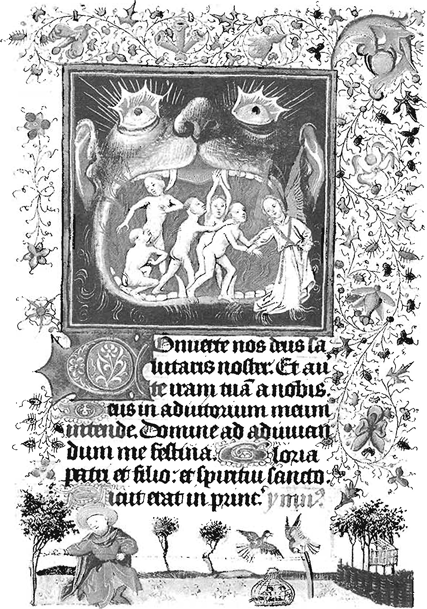 Conuerte nos deus sa
lutaris noster. Et au
te iram tuā a nobis.
Deus in adiutorium meum
intende. Domine ad adiuuan
dum me festina. Gloria
patri et filio: et spiritui sancto.
Sicut erat in princ.